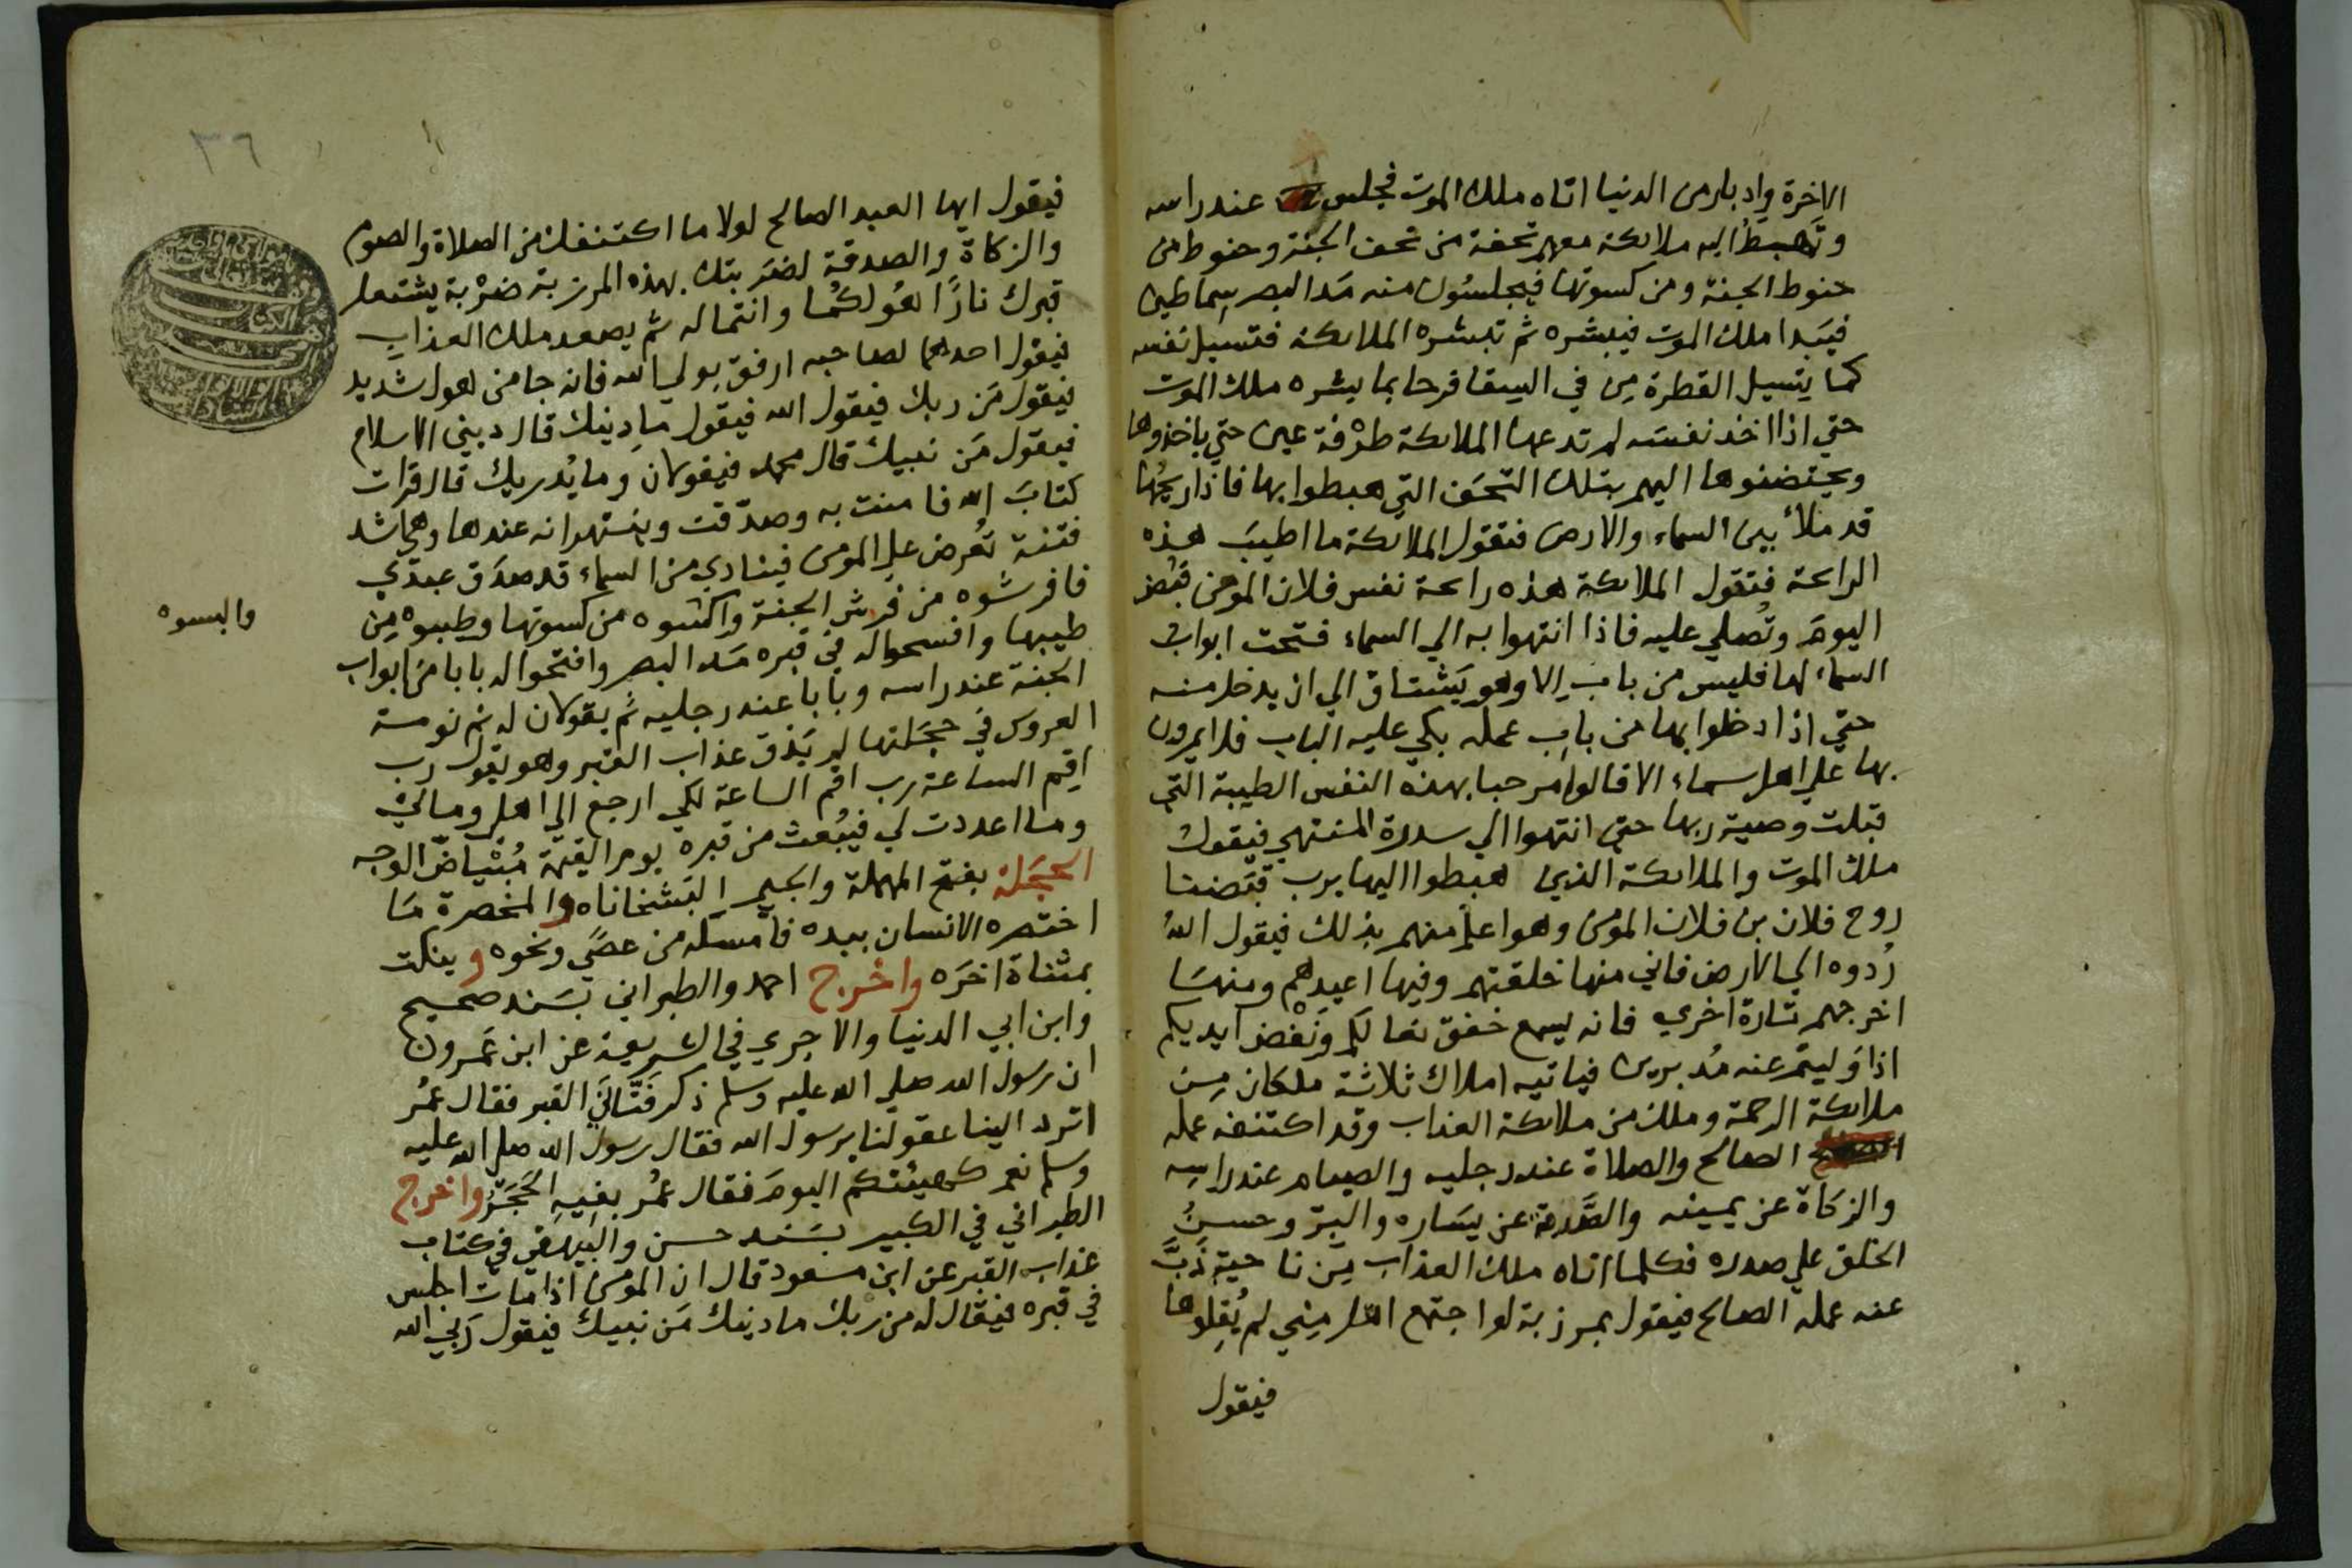 الاخرة وادبار من الدنيا اتاه ملك الموت فجلس عند راسه
وتهبط اليه ملائكة معهم تحفة من تحف الجنة وحنوط من
حنوط الجنة ومن كسوتها فيجلسون منه مَد البصر سماطين
فيبدا ملك الموت فيبشره ثم تبشره الملائكة فتسيل نفسه
كما يتسيل القطرة من في السقا فرحا بما يشره ملك الموت
حتي اذا اخذ نفسه لم تدعها الملائكة طرْفة عين حتي ياخذوها
ويحتضنوها اليهم بتلك التحف التي هبطوا بها فاذا ريحُها
قد ملأ بين السماء والارض فتقول الملائكة ما اطيبَ هذه
الرائحة فتقول الملائكة هذه رائحة نفس فلان المومن قبُض
اليومَ وتُصلي عليه فاذا انتهوا به الي السماء فتحت ابواب
السماء لها فليس من باب الا وهو يَشتاق الي ان يدخل منه
حتي اذا دخلوا بها من باب عمله بكي عليه الباب فلا يمرون
بها علي اهل سماء الا قالوا مرحبا بهذه النفس الطيبة التي
قبلت وصية ربها حتي انتهوا الي سدرة المنتهي فيقول
ملك الموت والملائكة الذين هبطوا اليها يرب قبَضنا
روح فلان بن فلان المومن وهو اعلم منهم بذلك فيقول الله
رُدوه الي الارض فاني منها خلقتهم وفيها اعيدهم ومنها
اخرجهم تارة اخري فانه يسمع خفق نعالكم ونَفْض ايديكم
اذا وَليتم عنه مُدبرين فياتيه املاك ثلاثة ملكان مِن
ملائكة الرحمة وملك من ملائكة العذاب وقد اكتنفه عمله
الصالح والصلاة عند رجليه والصيام عند راسِه
والزكاة عن يمينه والصَّدقة عن يسَاره والبرّ وحسنُ
الخلق علي صدره فكلما اتاه ملك العذاب مِن ناحية ذَبَّ
عنه عمله الصالح فيقول بمرزبة لو اجتمع اهل مِني لم يُقلوها
فيقول
٣٦
فيقول ايها العبد الصالح لولا ما اكتنفك من الصلاة والصوم
والزكاة والصدقة لضرَبتك بهذه المرزبة ضرْبة يشتعل
قبرك نارًا هُو لكُما وانتما له ثم يصعد ملك العذاب
فيقول احدهما لصاحبه ارفق بولي الله فانه جا من هول شديد
فيقول مَن ربك فيقول الله فيقول ما دِينك قال ديني الاسلام
فيقول مَن نبيك قال محمد فيقولان وما يُدريك قال قرات
كتابَ الله فامنت به وصدّقت وينتهرانه عندها وهي اشد
فتنة تُعرض علي المومن فينادي من السماء قد صدَق عبدي
فافرشوه من فرش الجنة واكسوه من كسوتها وطيبوه مِن
طيبها وافسحوا له في قبره مَد البصر وافتحوا له بابا من ابواب
الجنة عند راسه وبابا عند رجليه ثم يقولان له نم نومة
العروس في حجَلتها لم يَذق عذاب القبر وهو يقول رب
اقِم الساعة رب اقم الساعة لكي ارجع الي اهلي ومالي
وما اعددت لي فيُبعث من قبره يوم القيمة مُبْياضّ الوجه
الحجَلة بفتح المهملة والجيم البَشخاناه والمخصرة مَا
اختصره الانسان بيده فأمسكه من عصًي ونحوه وينكت
بمثناة اخرَه واخرج احمد والطبراني بسَند صحيح
وابن ابي الدنيا والاجري في الشريعة عن ابن عَمرو
ان رسول الله صلي الله عليه وسلم ذكر فتَّاني القبر فقال عمُر
اترد الينا عقولنا يرسول الله فقال رسول الله صلي الله عليه
وسلم نعم كهيئتكم اليومَ فقال عمُر بفيهِ الحَجَر واخرج
الطبراني في الكبير بسَند حسن والبيهقي في كتاب
عذاب القبر عن ابن مسعود قال ان المومن اذا مَات اجلس
في قبره فيقال له من ربك ما دينك مَن نبيك فيقول رَبي الله
والبسوه